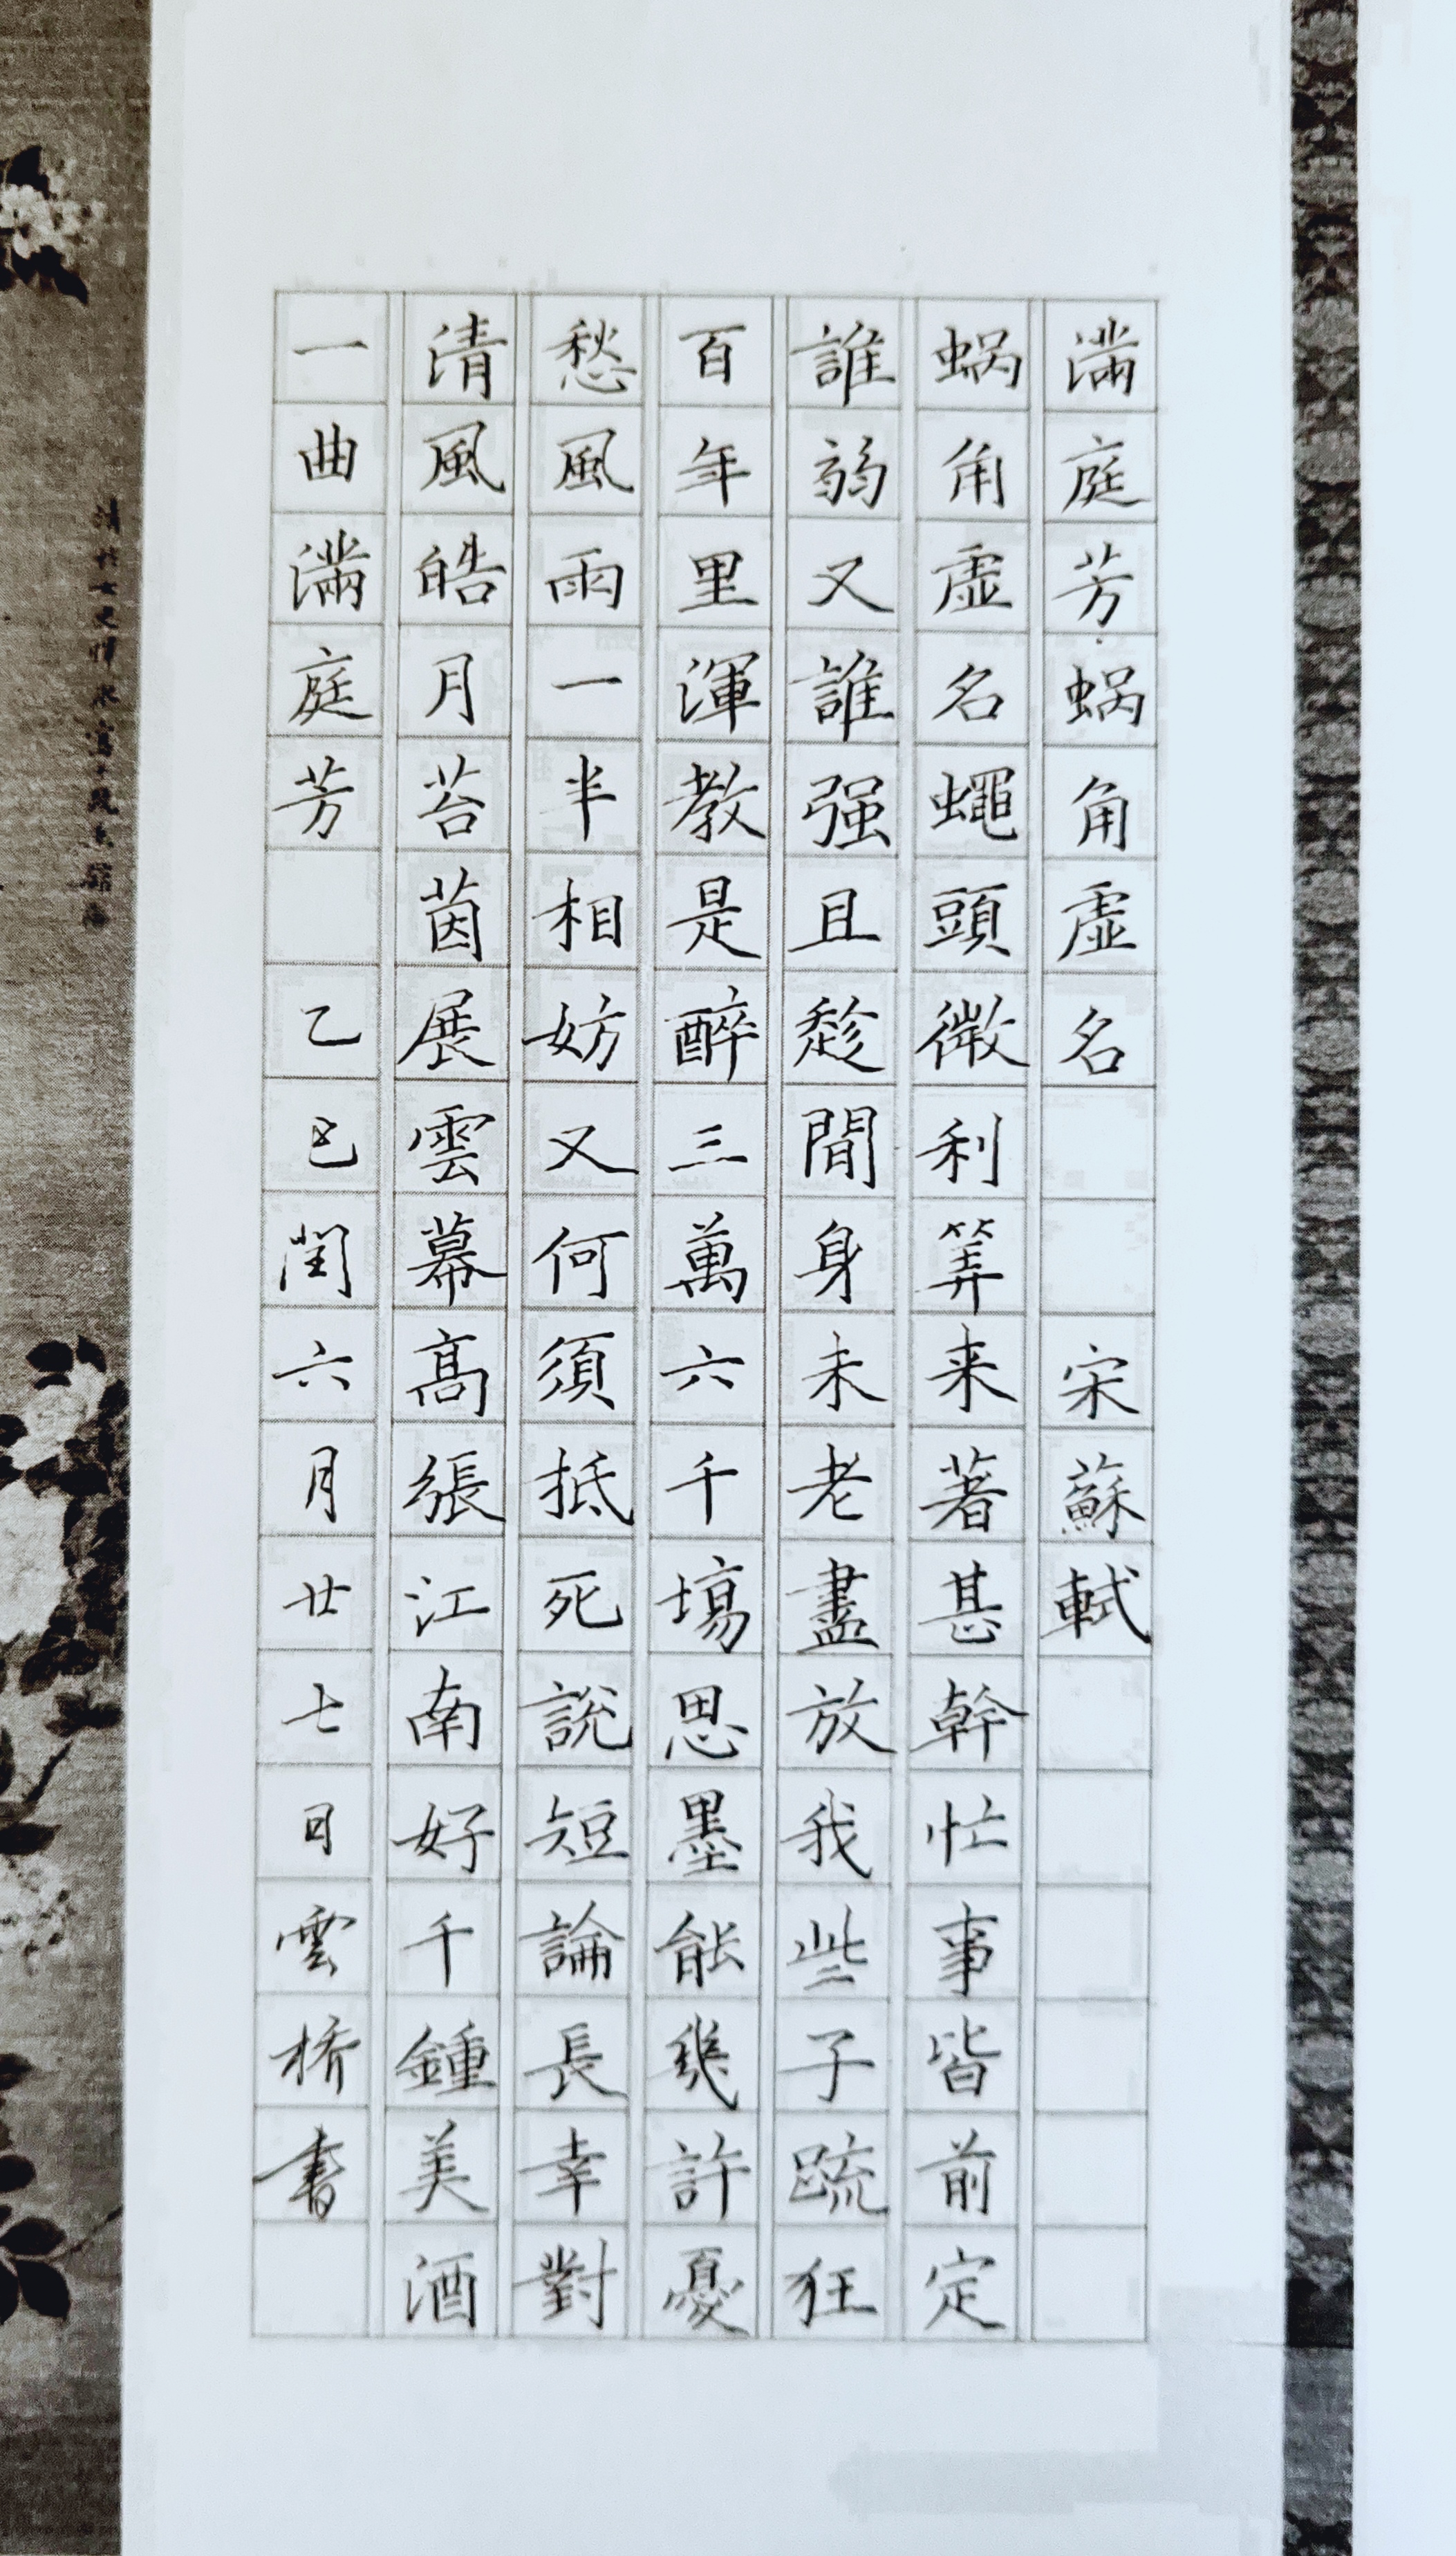 滿庭芳·蜗角虛名 宋蘇軾
蜗角虛名蠅頭微利筭来著甚幹忙事皆前定
誰弱又誰强且趂閒身未老盡放我些子踈狂
百年里渾教是醉三萬六千場思墨能幾許憂
愁風雨一半相妨又何須抵死說短論長幸對
清風皓月苔茵展雲幕高張江南好千鍾美酒
一曲滿庭芳 乙巳閏六月廿七日雲橋書